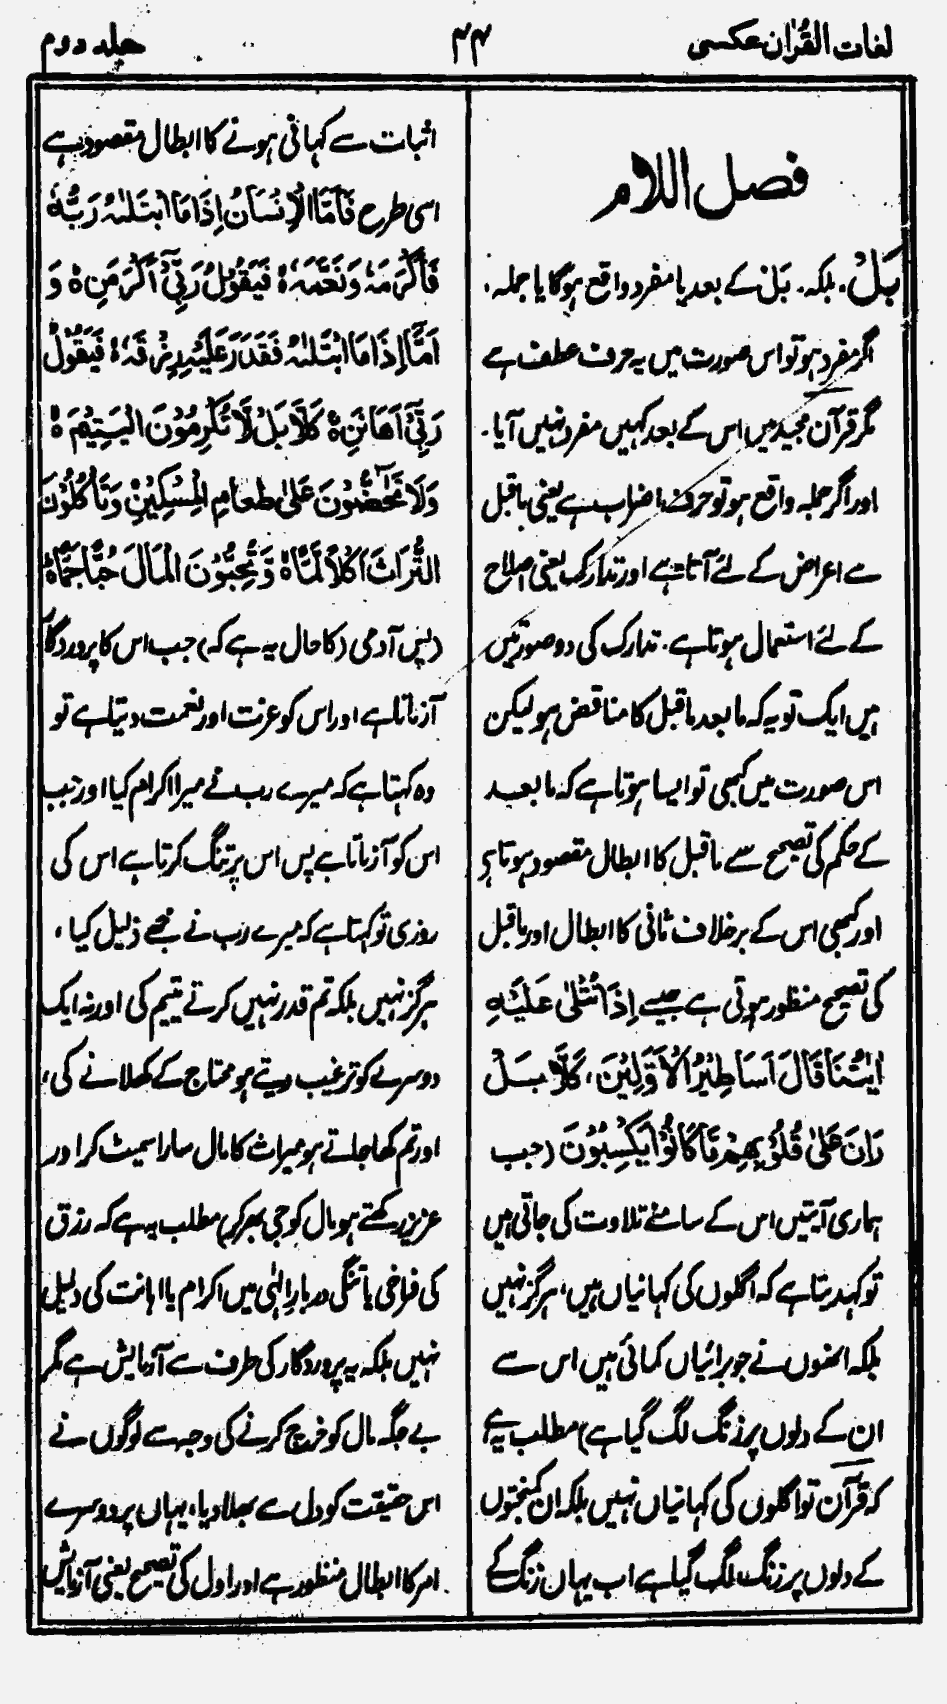 لغات القرآن عکسی
۴۴
جلد دوم
فصل اللام
بَلْ۔ بلکہ۔ بَلْ کے بعد یا مفرد واقع ہوگا یا جملہ،
اگر مفرد ہو تو اس صورت میں یہ حرف عطف ہے
مگر قرآن مجید میں اس کے بعد کہیں مفرد نہیں آیا۔
اور اگر جملہ واقع ہو تو حرف اضراب ہے یعنی ماقبل
سے اعراض کے لئے آتا ہے اور تدارک یعنی اصلاح
کے لئے استعمال ہوتا ہے۔ تدارک کی دو صورتیں
ہیں ایک تو یہ کہ ما بعد ماقبل کا مناقض ہو لیکن
اس صورت میں کبھی تو ایسا ہوتا ہے کہ ما بعد
کے حکم کی تصحیح سے ماقبل کا ابطال مقصود ہوتا ہے
اور کبھی اس کے برخلاف ثانی کا ابطال اور ماقبل
کی تصحیح منظور ہوتی ہے جیسے اِذَا تُتْلٰی عَلَیْہِ
اٰیٰتُنَا قَالَ اَسَاطِیْرُ الْاَوَّلِیْنَ، کَلَّا بَلْ
رَانَ عَلٰی قُلُوْبِھِمْ مَّا کَانُوْا یَکْسِبُوْنَ (جب
ہماری آیتیں اس کے سامنے تلاوت کی جاتی ہیں
تو کہہ دیتا ہے کہ اگلوں کی کہانیاں ہیں، ہرگز نہیں
بلکہ انھوں نے جو برائیاں کمائی ہیں اس سے
ان کے دلوں پر زنگ لگ گیا ہے) مطلب یہ ہے
کہ قرآن تو اگلوں کی کہانیاں نہیں بلکہ ان کمبختوں
کے دلوں پر زنگ لگ گیا ہے اب یہاں زنگ کے
اثبات سے کہانی ہونے کا ابطال مقصود ہے
اسی طرح فَاَمَّا الْاِنْسَانُ اِذَا مَا ابْتَلٰىہُ رَبُّہٗ
فَاَکْرَمَہٗ وَنَعَّمَہٗ ۙ فَیَقُوْلُ رَبِّیْۤ اَکْرَمَنِ ۵ وَ
اَمَّاۤ اِذَا مَا ابْتَلٰىہُ فَقَدَرَ عَلَیْہِ رِزْقَہٗ ۙ فَیَقُوْلُ
رَبِّیْۤ اَھَانَنِ ۵ کَلَّا بَلْ لَّا تُکْرِمُوْنَ الْیَتِیْمَ ۵
وَلَا تَحٰۤضُّوْنَ عَلٰی طَعَامِ الْمِسْکِیْنِ وَتَاْکُلُوْنَ
التُّرَاثَ اَکْلًا لَّمًّا ۵ وَّتُحِبُّوْنَ الْمَالَ حُبًّا جَمًّا ۵
(پس آدمی (کا حال یہ ہے کہ) جب اس کا پروردگار
آزماتا ہے اور اس کو عزت اور نعمت دیتا ہے تو
وہ کہتا ہے کہ میرے رب نے میرا اکرام کیا اور جب
اس کو آزماتا ہے پس اس پر تنگ کرتا ہے اس کی
روزی تو کہتا ہے کہ میرے رب نے مجھے ذلیل کیا،
ہرگز نہیں بلکہ تم قدر نہیں کرتے یتیم کی اور نہ ایک
دوسرے کو ترغیب دیتے ہو محتاج کے کھلانے کی،
اور تم کھا جاتے ہو میراث کا مال سارا سمیٹ کر اور
عزیز رکھتے ہو مال کو جی بھر کر) مطلب یہ ہے کہ رزق
کی فراخی یا تنگی دربارِ الٰہی میں اکرام یا اہانت کی دلیل
نہیں بلکہ یہ پروردگار کی طرف سے آزمایش ہے مگر
بے جگہ مال کو خرچ کرنے کی وجہ سے لوگوں نے
اس حقیقت کو دل سے بھلا دیا، یہاں پر دوسرے
امر کا ابطال منظور ہے اور اول کی تصحیح یعنی آزمایش